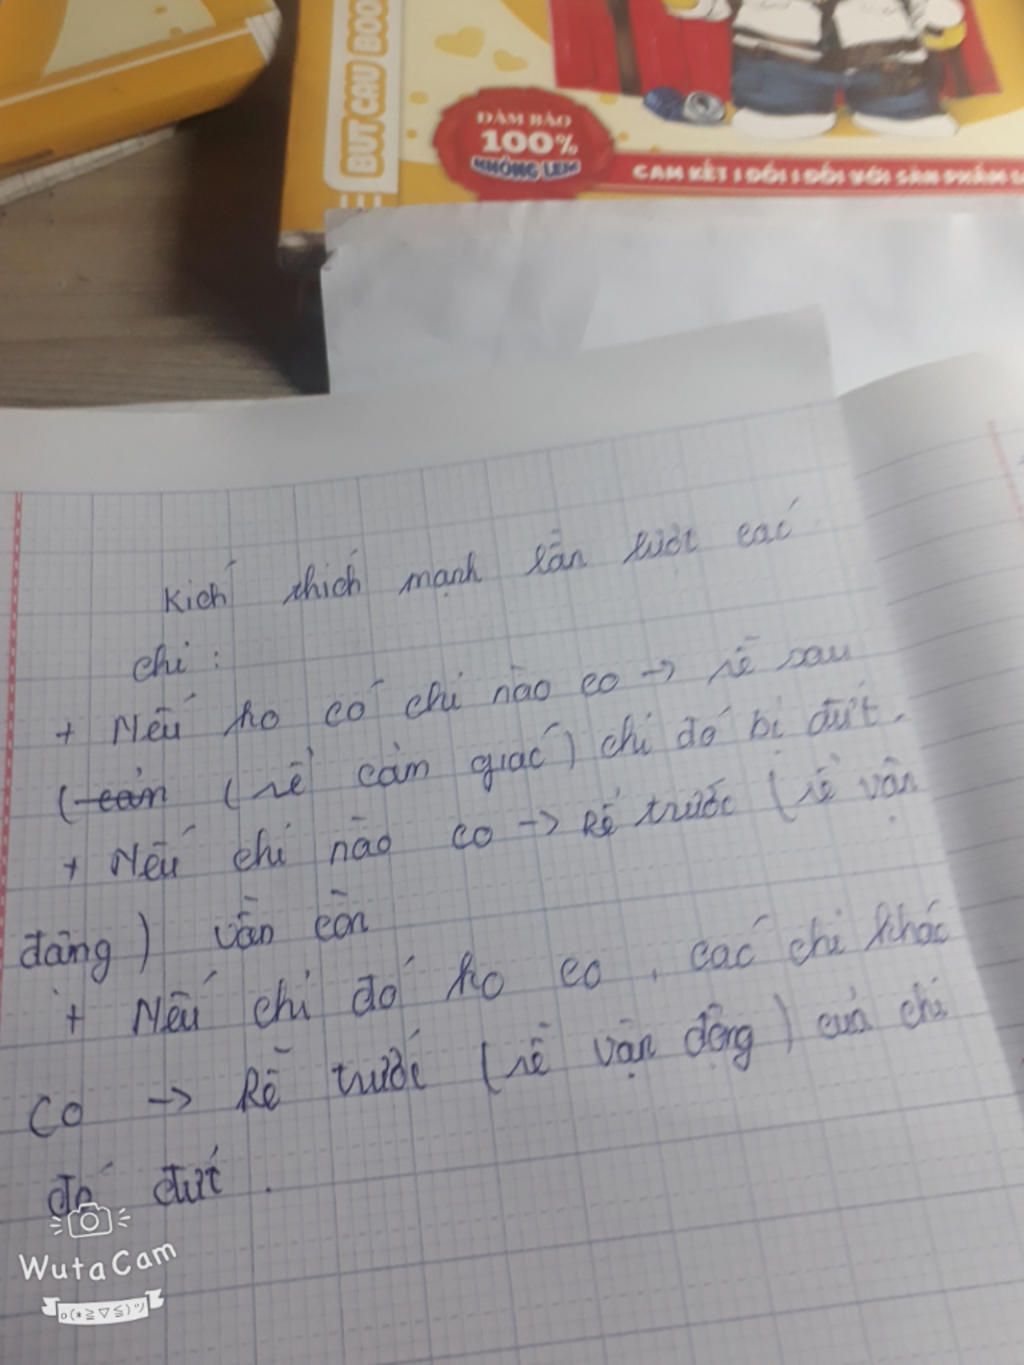 BÚT CẦU BOO
ĐẢM BẢO
100%
KHÔNG LEM
CAM KẾT 1 ĐỔI 1 ĐỐI VỚI SẢN PHẨM
Kích thích mạnh lần lượt các
chi :
+ Nếu ko có chi nào co → rễ sau
(cảm (rễ cảm giác) chi đó bị đứt.
+ Nếu chi nào co → Rễ trước (rễ vận
động) vẫn còn
+ Nếu chi đó ko co, các chi khác
co → Rễ trước (rễ vận động) của chi
đó đứt.
WutaCam
o(*≧▽≦)ツ